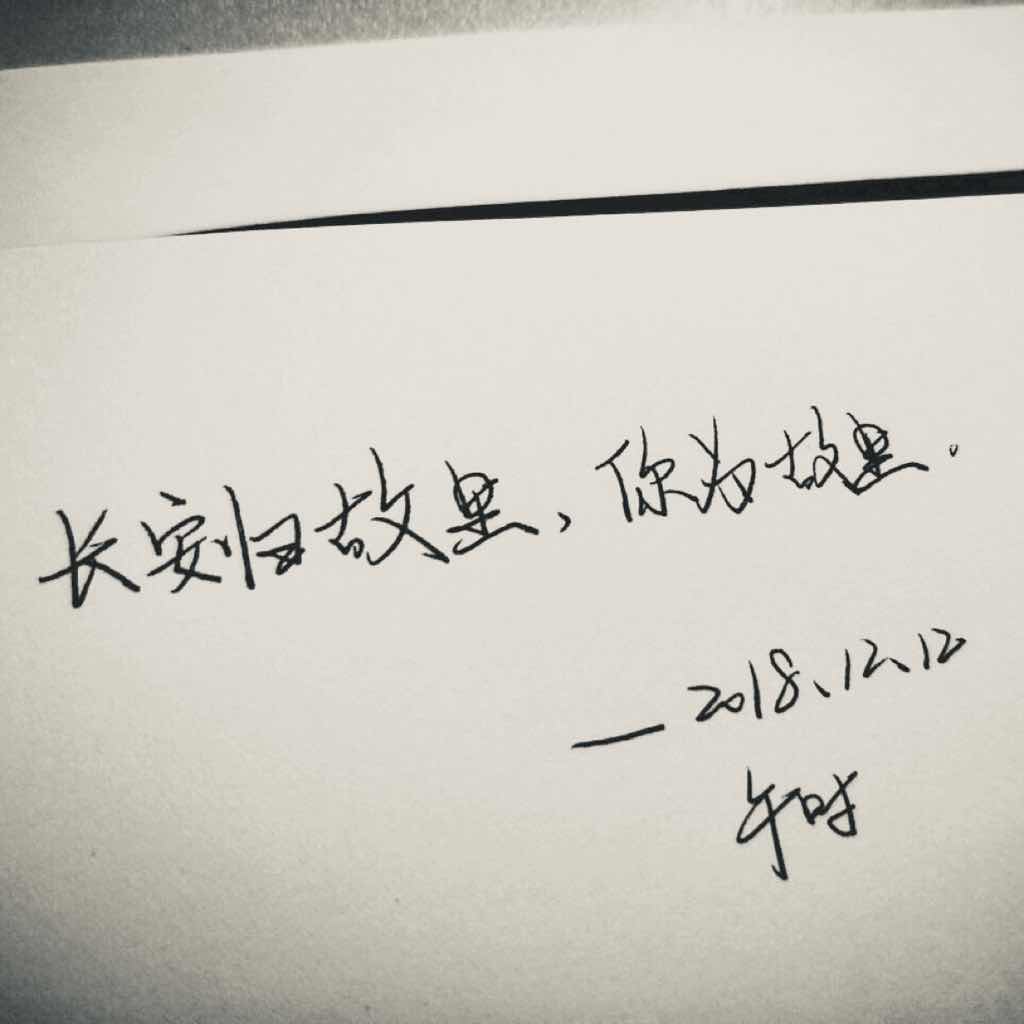 长安归故里，你为故里.
—2018、12、12
午时